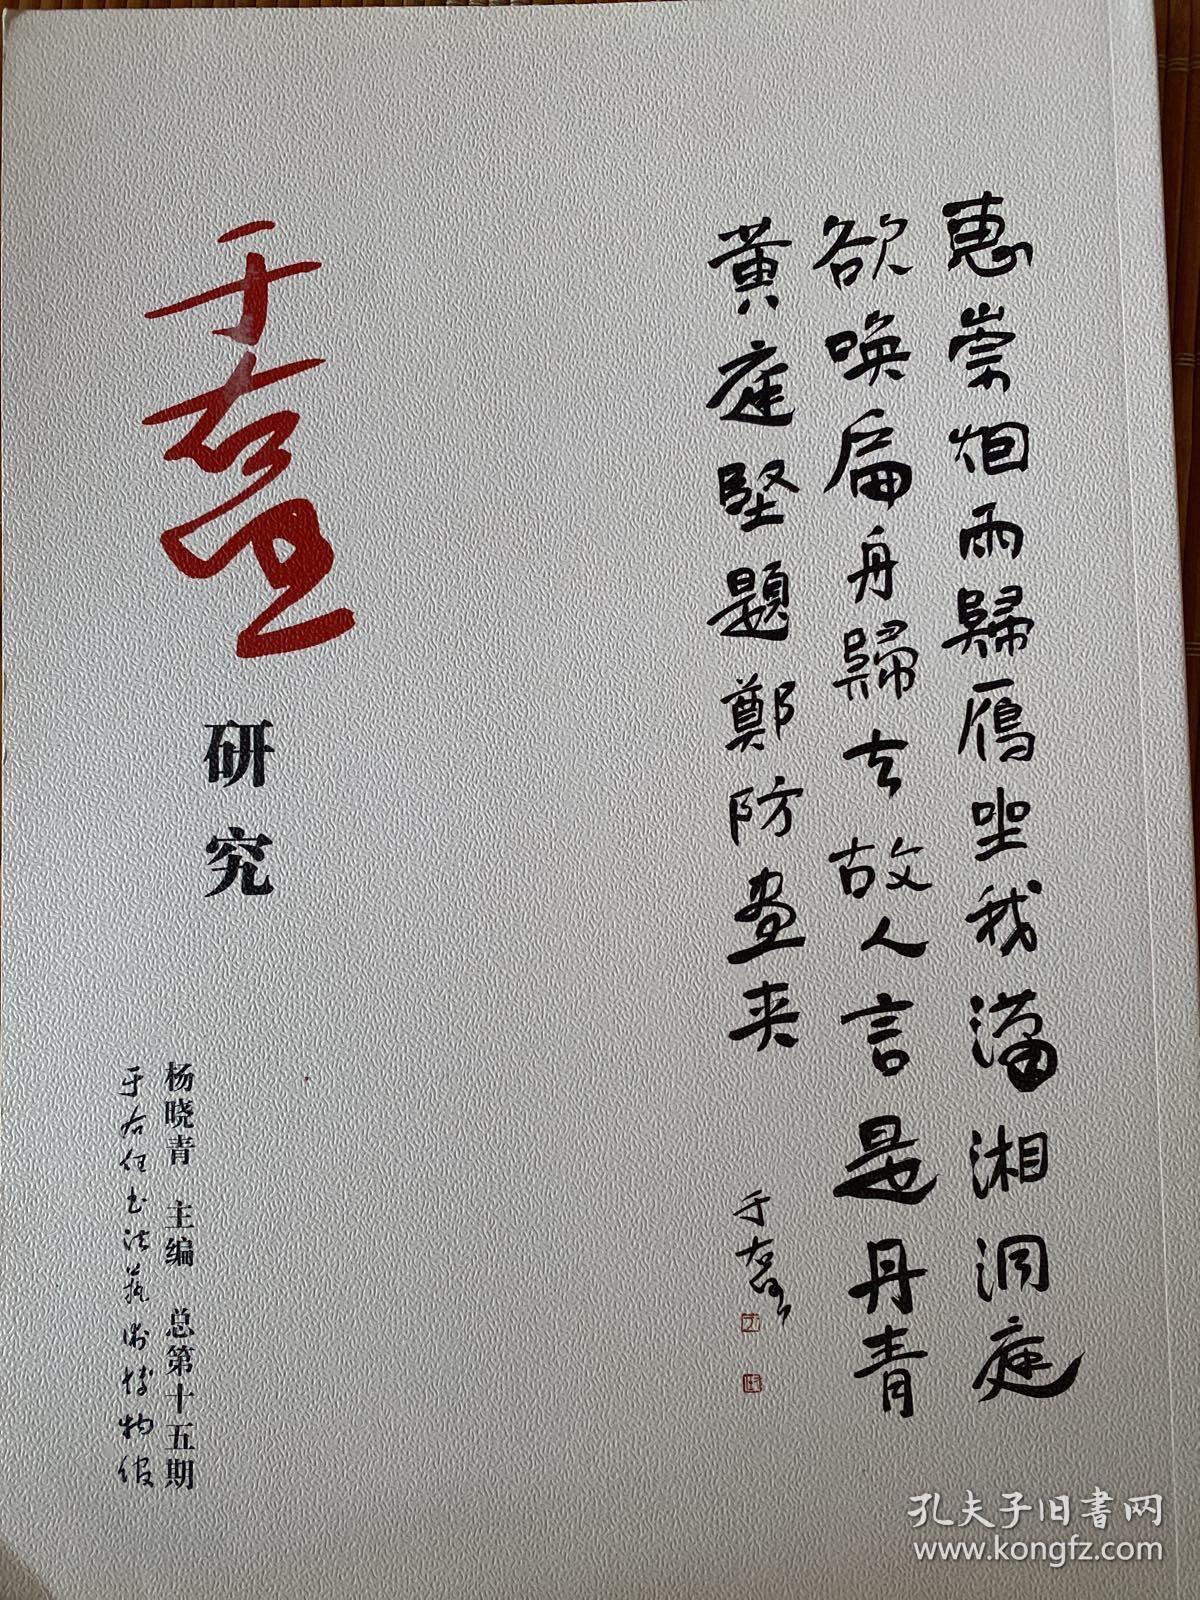 惠崇烟雨歸雁坐我瀟湘洞庭
欲喚扁舟歸去故人言是丹青
黄庭堅題鄭防畫夹
于右任
于右任
研究
杨晓青 主编 总第十五期
于右任书法艺术博物馆
孔夫子旧書网
www.kongfz.com